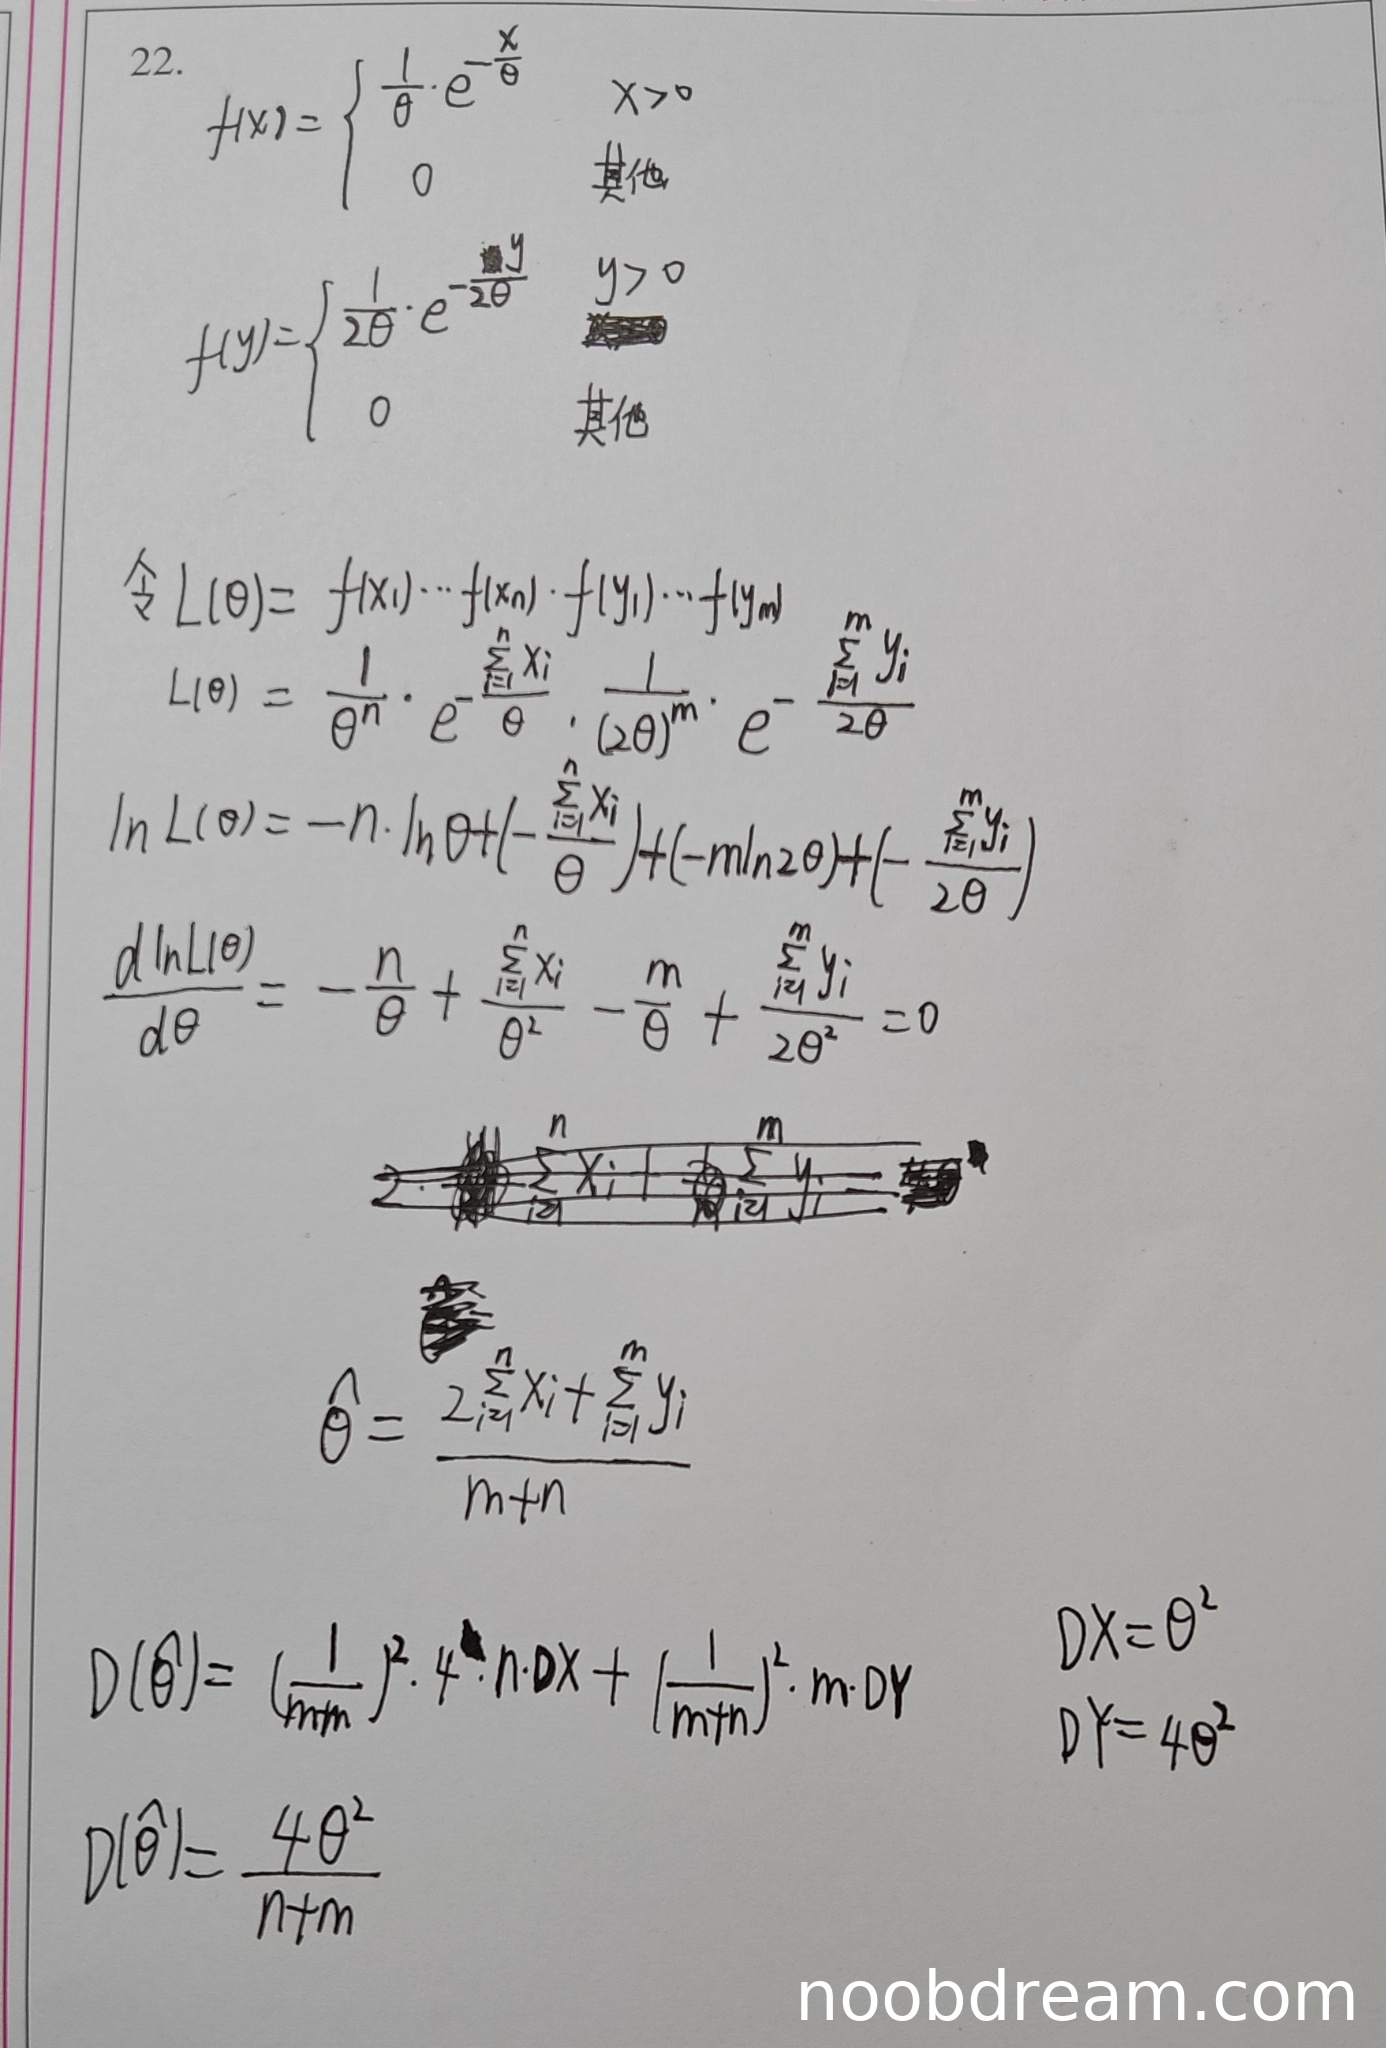 22.
f(x) = { 1/θ · e^(-x/θ) x>0
0 其他
f(y) = { 1/(2θ) · e^(-y/(2θ)) y>0
0 其他
令 L(θ) = f(x₁)⋯f(xₙ)·f(y₁)⋯f(yₘ)
L(θ) = 1/θⁿ · e^(-∑_{i=1}^{n} xᵢ/θ) · 1/(2θ)^m · e^(-∑_{i=1}^{m} yᵢ/(2θ))
ln L(θ) = -n·lnθ + (-∑_{i=1}^{n} xᵢ/θ) + (-mln2θ) + (-∑_{i=1}^{m} yᵢ/(2θ))
dlnL(θ)/dθ = -n/θ + ∑_{i=1}^{n} xᵢ/θ² - m/θ + ∑_{i=1}^{m} yᵢ/(2θ²) = 0
θ̂ = (2∑_{i=1}^{n} xᵢ + ∑_{i=1}^{m} yᵢ)/(m+n)
D(θ̂) = (1/(m+n))²·4·n·DX + (1/(m+n))²·m·DY
DX = θ²
DY = 4θ²
D(θ̂) = 4θ²/(n+m)
noobdream.com